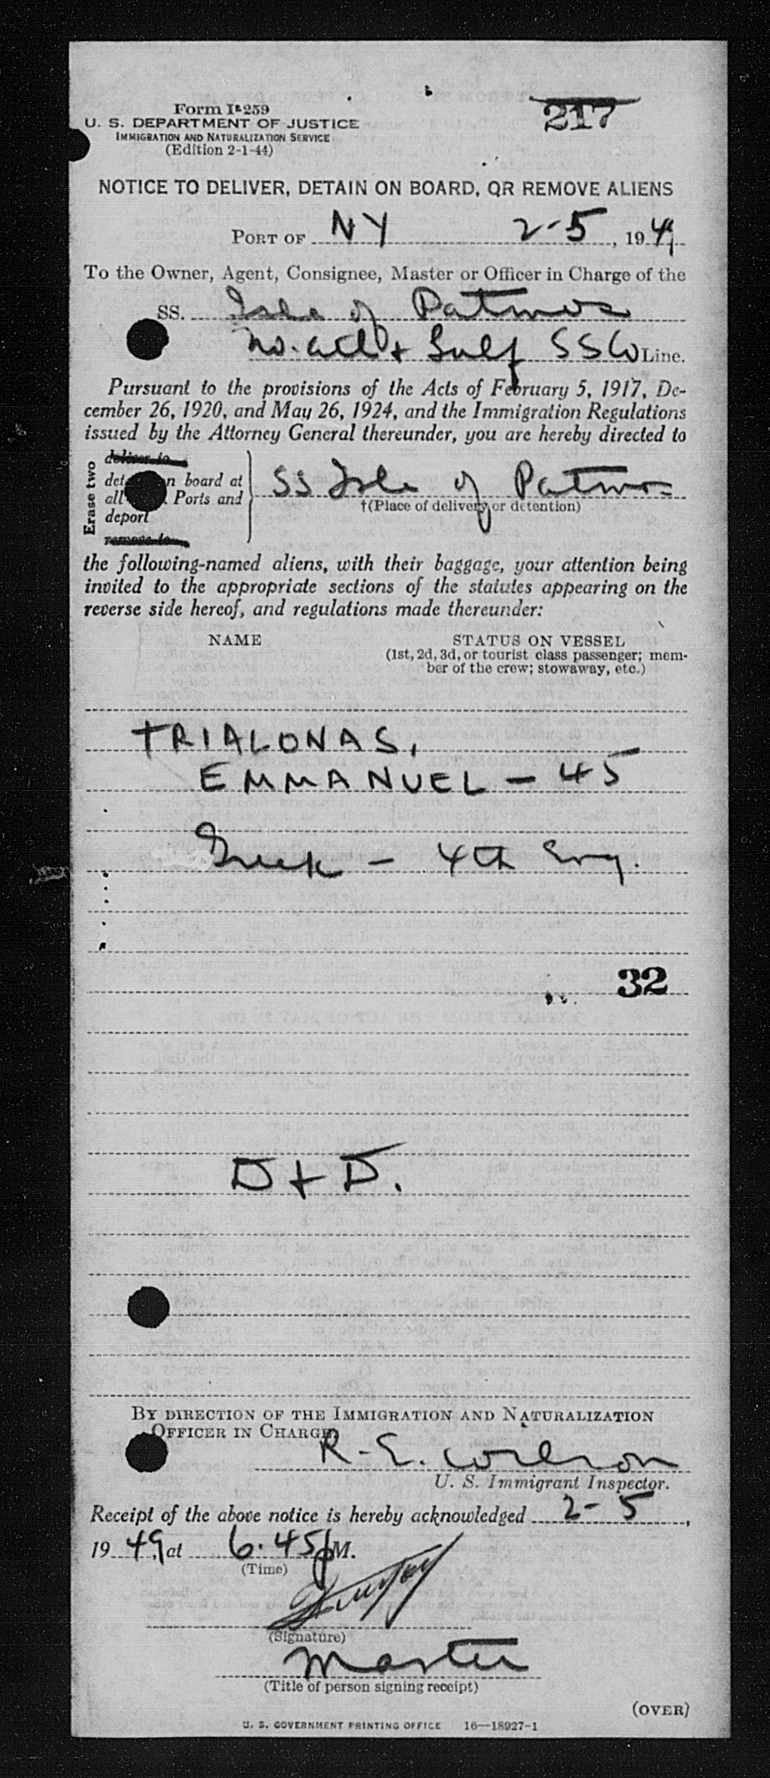 Form I-259
U. S. DEPARTMENT OF JUSTICE
IMMIGRATION AND NATURALIZATION SERVICE
(Edition 2-1-44)
217
NOTICE TO DELIVER, DETAIN ON BOARD, OR REMOVE ALIENS
PORT OF NY 2-5, 1949
To the Owner, Agent, Consignee, Master or Officer in Charge of the
SS. Isle of Patmos
No. Atl & Gulf SS Co Line.
Pursuant to the provisions of the Acts of February 5, 1917, De-
cember 26, 1920, and May 26, 1924, and the Immigration Regulations
issued by the Attorney General thereunder, you are hereby directed to
Erase two
deliver to
detain on board at
all Ports and
deport
remove to
SS Isle of Patmos
†(Place of delivery or detention)
the following-named aliens, with their baggage, your attention being
invited to the appropriate sections of the statutes appearing on the
reverse side hereof, and regulations made thereunder:
NAME STATUS ON VESSEL
(1st, 2d, 3d, or tourist class passenger; mem-
ber of the crew; stowaway, etc.)
TRIALONAS,
EMMANUEL - 45
Greek - 4th Eng.
32
D + D.
BY DIRECTION OF THE IMMIGRATION AND NATURALIZATION
OFFICER IN CHARGE
R. E. Wilson
U. S. Immigrant Inspector.
Receipt of the above notice is hereby acknowledged 2-5,
1949, at 6.45 PM.
(Time)
(Signature)
Master
(Title of person signing receipt)
(OVER)
U. S. GOVERNMENT PRINTING OFFICE 16—18927-1